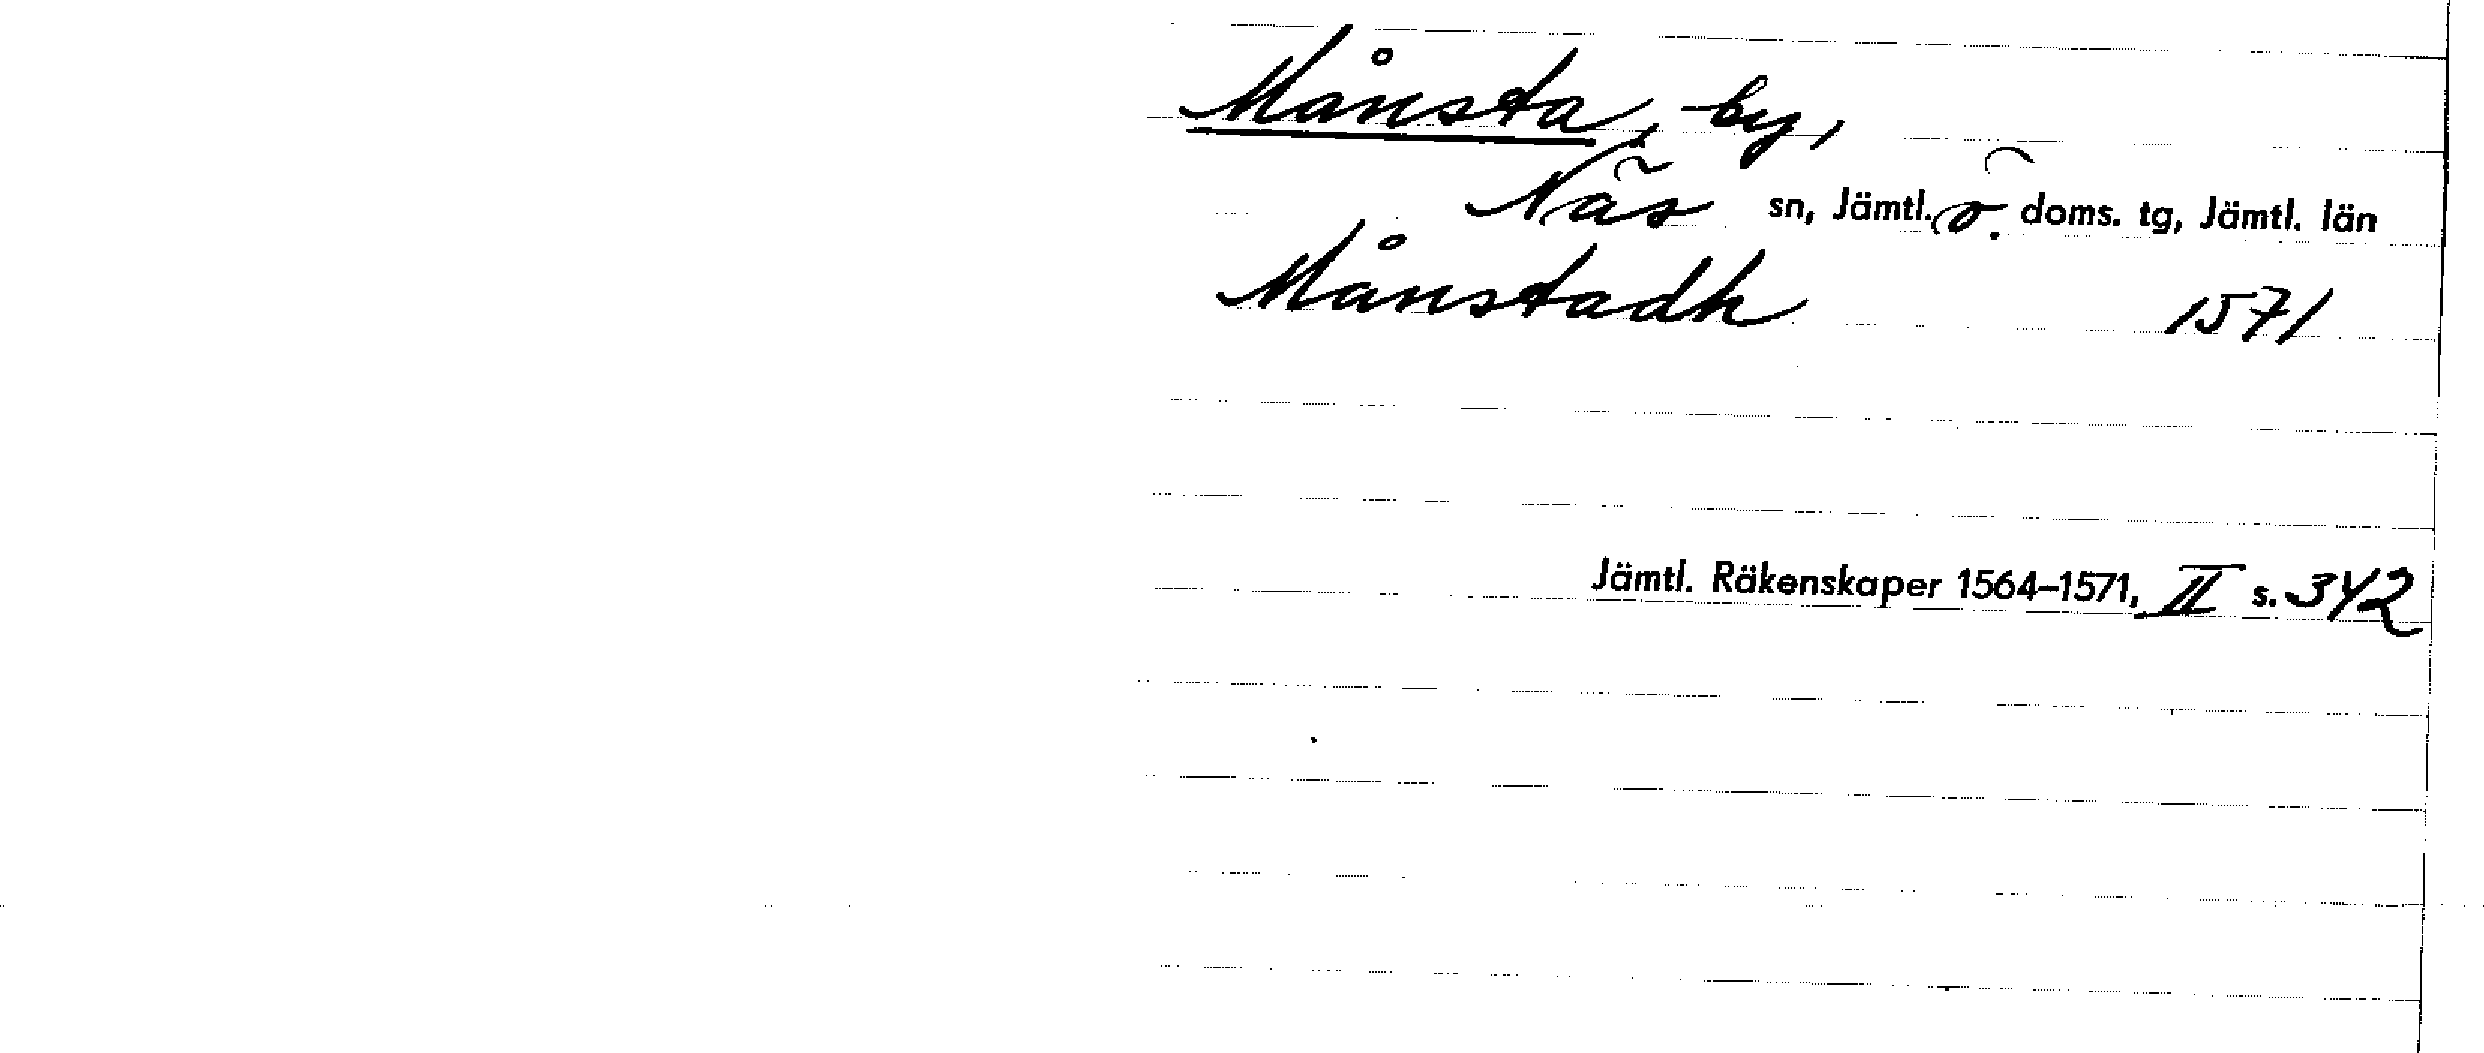 Månsta, by,
Näs sn, Jämtl. ö. doms. tg, Jämtl. län
Månstadh 1571
Jämtl. Räkenskaper 1564–1571, II s. 342